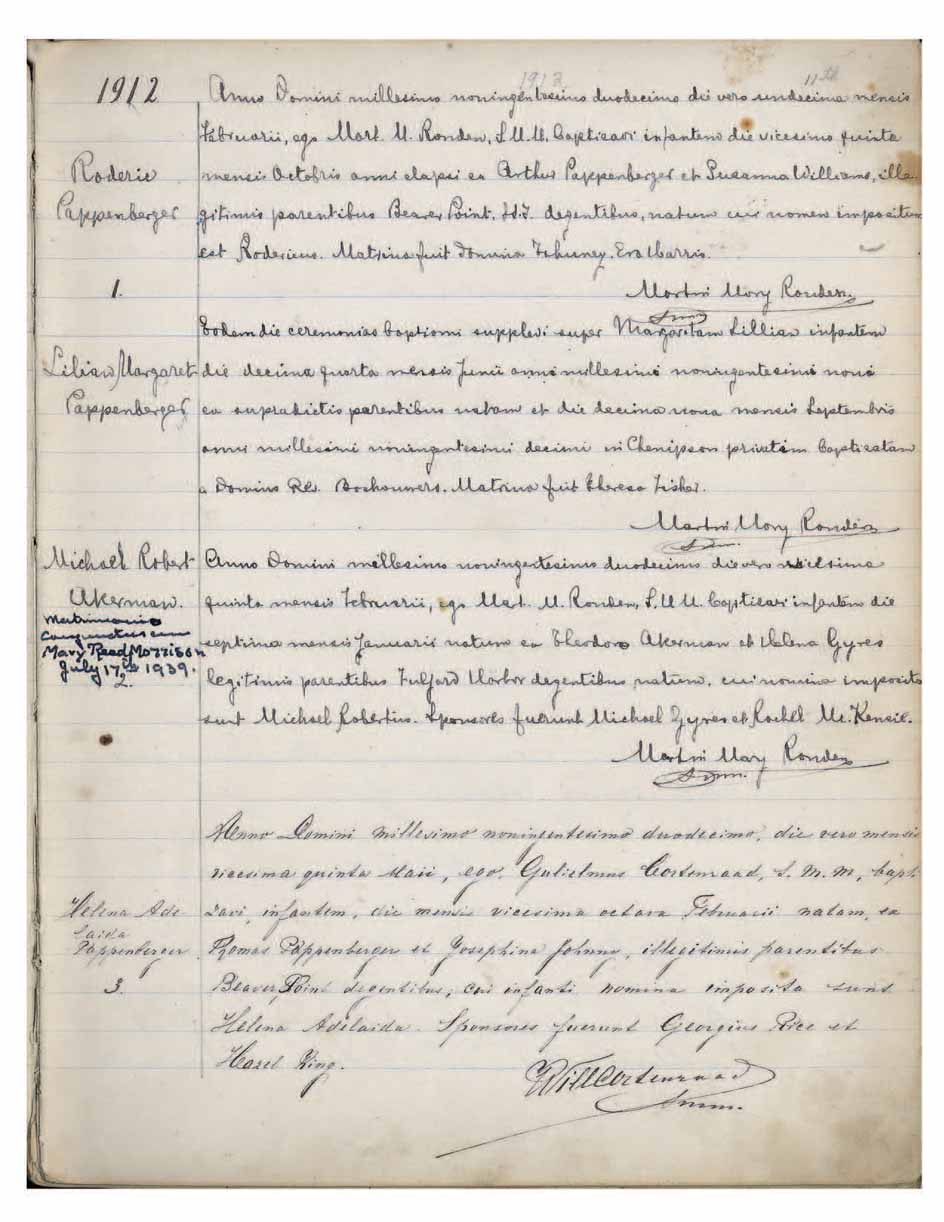 1912
1912
11th
Anno Domini millesimo noningentesimo duodecimo die vero undecima mensis
Februarii, ego Mart. M. Ronden, S.M.M. baptizavi infantem die vicesima quinta
Roderic
Pappenberger
mensis Octobris anni elapsi ex Arthur Pappenberger et Susanna Williams, ille-
gitimis parentibus Beaver Point, degentibus, natum cui nomen impositum
est Rodericus. Matrina fuit Domina
1.
Martin Mary Ronden
smm
Eodem die ceremonias baptismi supplevi super Margaritam Lillian infantem
Lilian Margaret
Pappenberger
die decima quarta mensis Junii anni millesimi noningentesimi noni
ex supradictis parentibus natam et die decima nona mensis Septembris
anni millesimi noningentesimi decimi in privatim baptizatam
a Domino Rev. Boshouwers. Matrina fuit Theresa Fisher.
Martin Mary Ronden
smm.
Michael Robert
Akerman.
Matrimonio
conjunctus cum
Mary Read Morrison
July 17th 1939.
2.
Anno Domini millesimo noningentesimo duodecimo die vero vicesima
quinta mensis Februarii, ego Mart. M. Ronden, S.M.M. baptizavi infantem die
septima mensis Januarii natum ex Theodoro Akerman et Helena Gyves
legitimis parentibus Fulford Harbor degentibus natum, cui nomina imposita
sunt Michael Robertus. Sponsores fuerunt Michael Gyves et Rachel Mc. Kensie.
Martin Mary Ronden
smm.
Anno Domini millesimo noningentesimo duodecimo, die vero mensis
vicesima quinta Maii, ego, Gulielmus Cortenraad, S. M. M, bapti
Helena Ade
laida
Pappenberger
3.
zavi, infantem, die mensis vicesima octava Februarii natam, ex
Thomas Pappenberger et Josephina Johnny, illegitimis parentibus
Beaver Point degentibus; cui infanti nomina imposita sunt
Helena Adelaida. Sponsores fuerunt Georgius Rice et
Hazel King.
Will Cortenraad
smm.